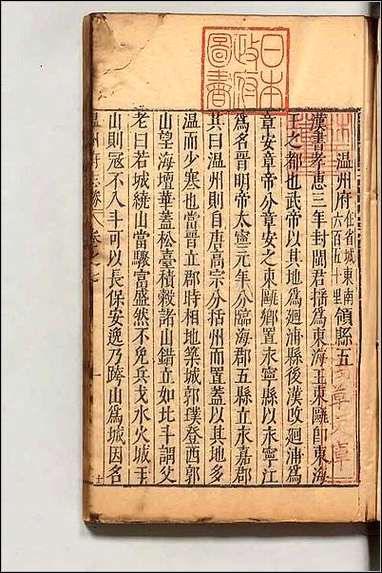 日本
政府
圖書
温州府 在省城東南六百五十里 領縣五
漢書孝惠三年封閩君搖爲東海王東甌即東海
王之都也武帝以其地爲廻浦縣後漢改廻浦爲
章安章帝分章安之東甌鄉置永寧縣以永寧江
爲名晉明帝太寧元年分臨海郡五縣立永嘉郡
其曰温州則自唐高宗分括州而置蓋以其地多
温而少寒也當晉立郡時相地築城郭璞登西郭
山望海壇華蓋松臺積穀諸山錯立如比斗謂父
老曰若城繞山當驟富盛然不免兵戈水火城于
山則冠不入斗可以長保安逸乃跨山爲城因名
温州府 卷之七 一